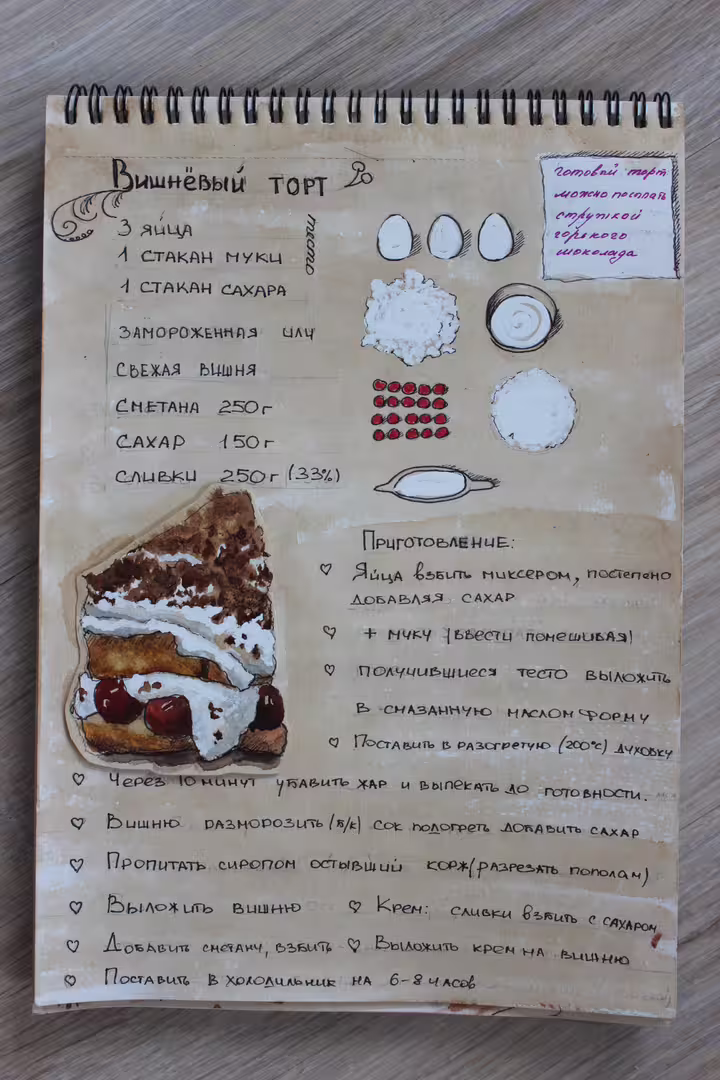 Вишнёвый торт
готовый торт
можно посыпать
стружкой
горького
шоколада
3 яйца
1 стакан муки
1 стакан сахара
тесто
замороженная или
свежая вишня
сметана 250г
сахар 150г
сливки 250г (33%)
Приготовление:
Яйца взбить миксером, постепено
добавляя сахар
+ муку (ввести помешивая)
получившиеся тесто выложить
в смазанную маслом форму
Поставить в разогретую (200°с) духовку
Через 10 минут убавить жар и выпекать до готовности.
Вишню разморозить (б/к) сок подогреть добавить сахар
Пропитать сиропом остывший корж (разрезать пополам)
Выложить вишню
Крем: сливки взбить с сахаром
Добавить сметану, взбить
Выложить крем на вишню
Поставить в холодильник на 6-8 часов